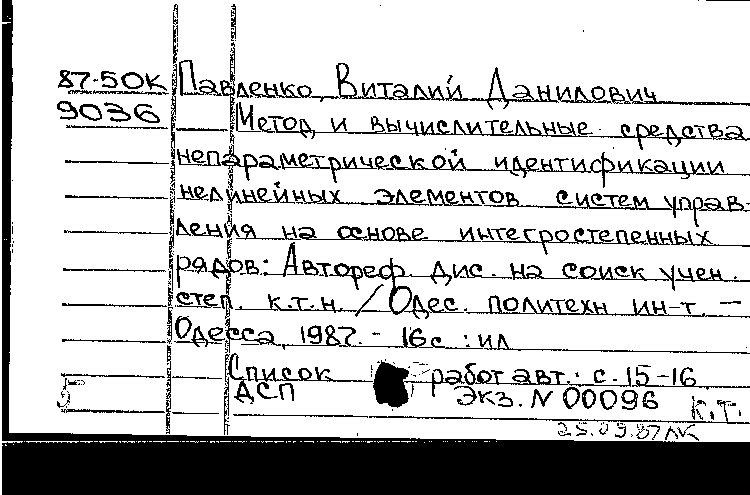 87-50К Павленко, Виталий Данилович
9036 Метод и вычислительные средства
непараметрической идентификации
нелинейных элементов систем управ-
ления на основе интегростепенных
рядов: Автореф. дис. на соиск учен.
степ. к.т.н. / Одес. политехн ин-т. –
Одесса, 1987. – 16с : ил
Список работ авт.: с. 15-16.
ДСП Экз. N 00096
5 К.Т.
25.09.87 ЛК